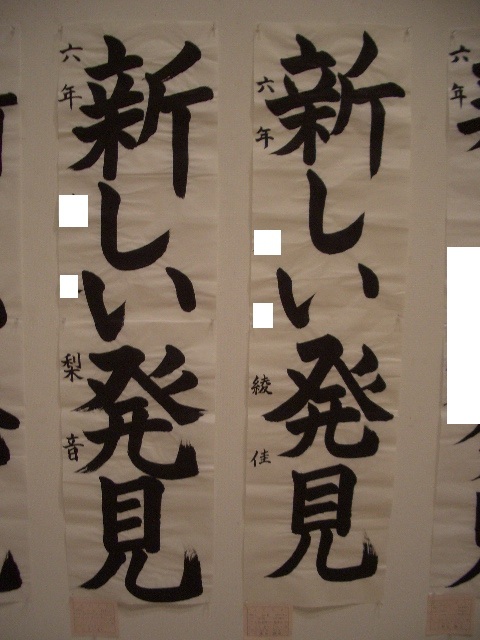 新しい発見
六年
綾佳
新しい発見
六年
梨音
六年